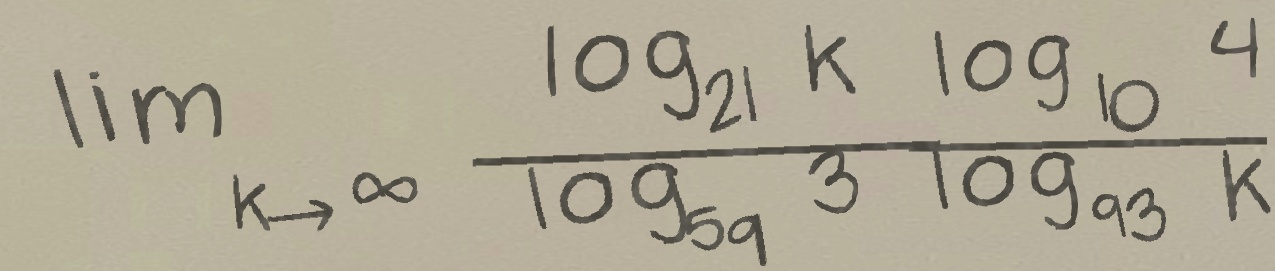 lim k→∞ log₂₁ k log₁₀ 4
log₅₉ 3 log₉₃ k